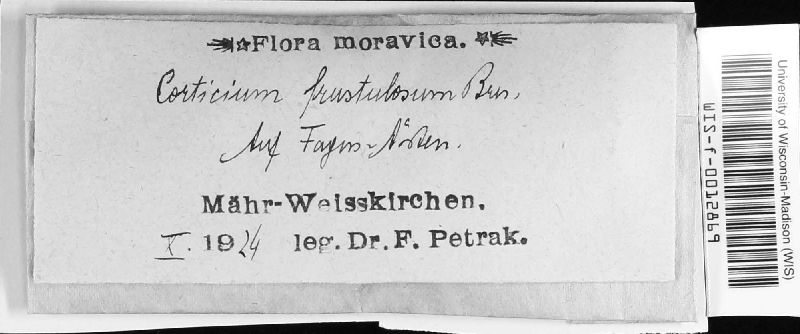 Flora moravica.
Corticium frustulosum Bres.
Auf Fagus-Ästen.
Mähr-Weisskirchen.
X. 1924 leg. Dr. F. Petrak.
University of Wisconsin-Madison (WIS)
WIS-f-0012869